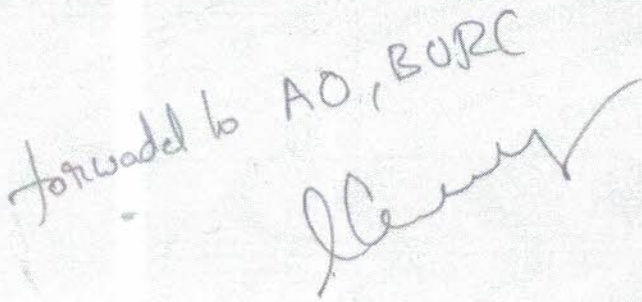 forwaded to AO, BURC